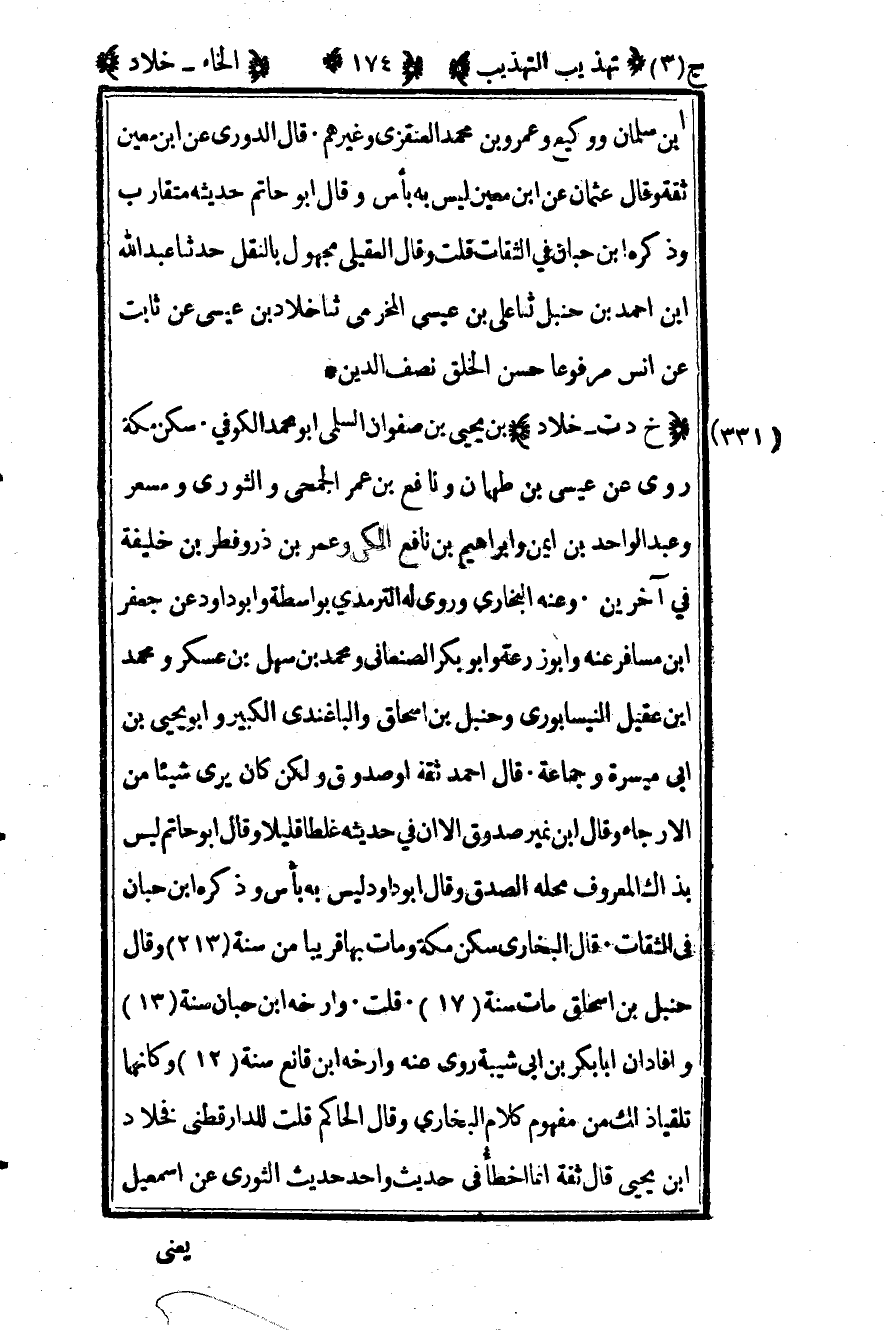 ج(٣) ﴿ تهذيب التهذيب ﴾ ﴿ ١٧٤ ﴾ ﴿ الخاء ـ خلاد ﴾
ابن سلمان ووكيع وعمرو بن محمد العنقزى وغيرهم · قال الدورى عن ابن معين
ثقة وقال عثمان عن ابن معين ليس به بأس وقال ابو حاتم حديثه متقارب
وذكره ابن حبان في الثقات قلت وقال العقيلي مجهول بالنقل حدثنا عبدالله
ابن احمد بن حنبل ثنا علي بن عيسى المخرمى ثنا خلاد بن عيسى عن ثابت
عن انس مرفوعا حسن الخلق نصف الدين *
(٣٣١) ﴿ خ د ت ـ خلاد ﴾ بن يحيى بن صفوان السلمى ابو محمد الكوفي · سكن مكة
روى عن عيسى بن طهمان ونافع بن عمر الجمحى والثورى ومسعر
وعبدالواحد بن ايمن وابراهيم بن نافع المكي وعمر بن ذر وفطر بن خليفة
في آخرين · وعنه البخاري وروى له الترمذي بواسطة وابو داود عن جعفر
ابن مسافر عنه وابوزرعة وابو بكر الصنعانى ومحمد بن سهل بن عسكر ومحمد
ابن عقيل النيسابورى وحنبل بن اسحاق والباغندى الكبير وابو يحيى بن
ابى ميسرة وجماعة · قال احمد ثقة اوصدوق ولكن كان يرى شيئا من
الارجاء وقال ابن نمير صدوق الا ان في حديثه غلطا قليلا وقال ابو حاتم ليس
بذاك المعروف محله الصدق وقال ابوداود ليس به بأس وذكره ابن حبان
فى الثقات · قال البخارى سكن مكة ومات بها قريبا من سنة (٢١٣) وقال
حنبل بن اسحاق مات سنة (١٧) · قلت · وارخه ابن حبان سنة (١٣)
وافاد ان ابابكر بن ابى شيبة روى عنه وارخه ابن قانع سنة (١٢) وكانهما
تلقيا ذلك من مفهوم كلام البخاري وقال الحاكم قلت للدارقطنى فخلاد
ابن يحيى قال ثقة انما اخطأ فى حديث واحد حديث الثورى عن اسمعيل
يعنى